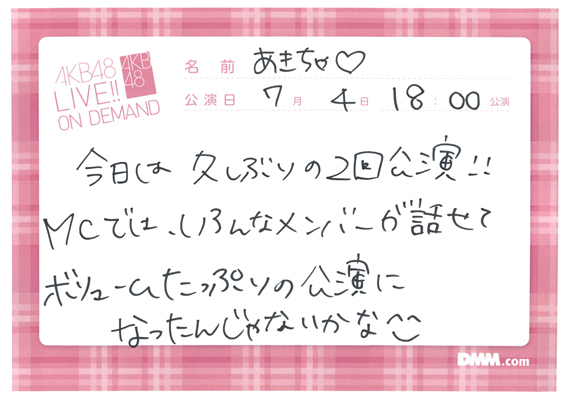 AKB48
LIVE!!
ON DEMAND
AKB
48
名前 あきちゃ♡
公演日 7月 4日 18:00公演
今日は 久しぶりの2回公演!!
MCでは、いろんなメンバーが話せて
ボリュームたっぷりの公演に
なったんじゃないかな
DMM.com